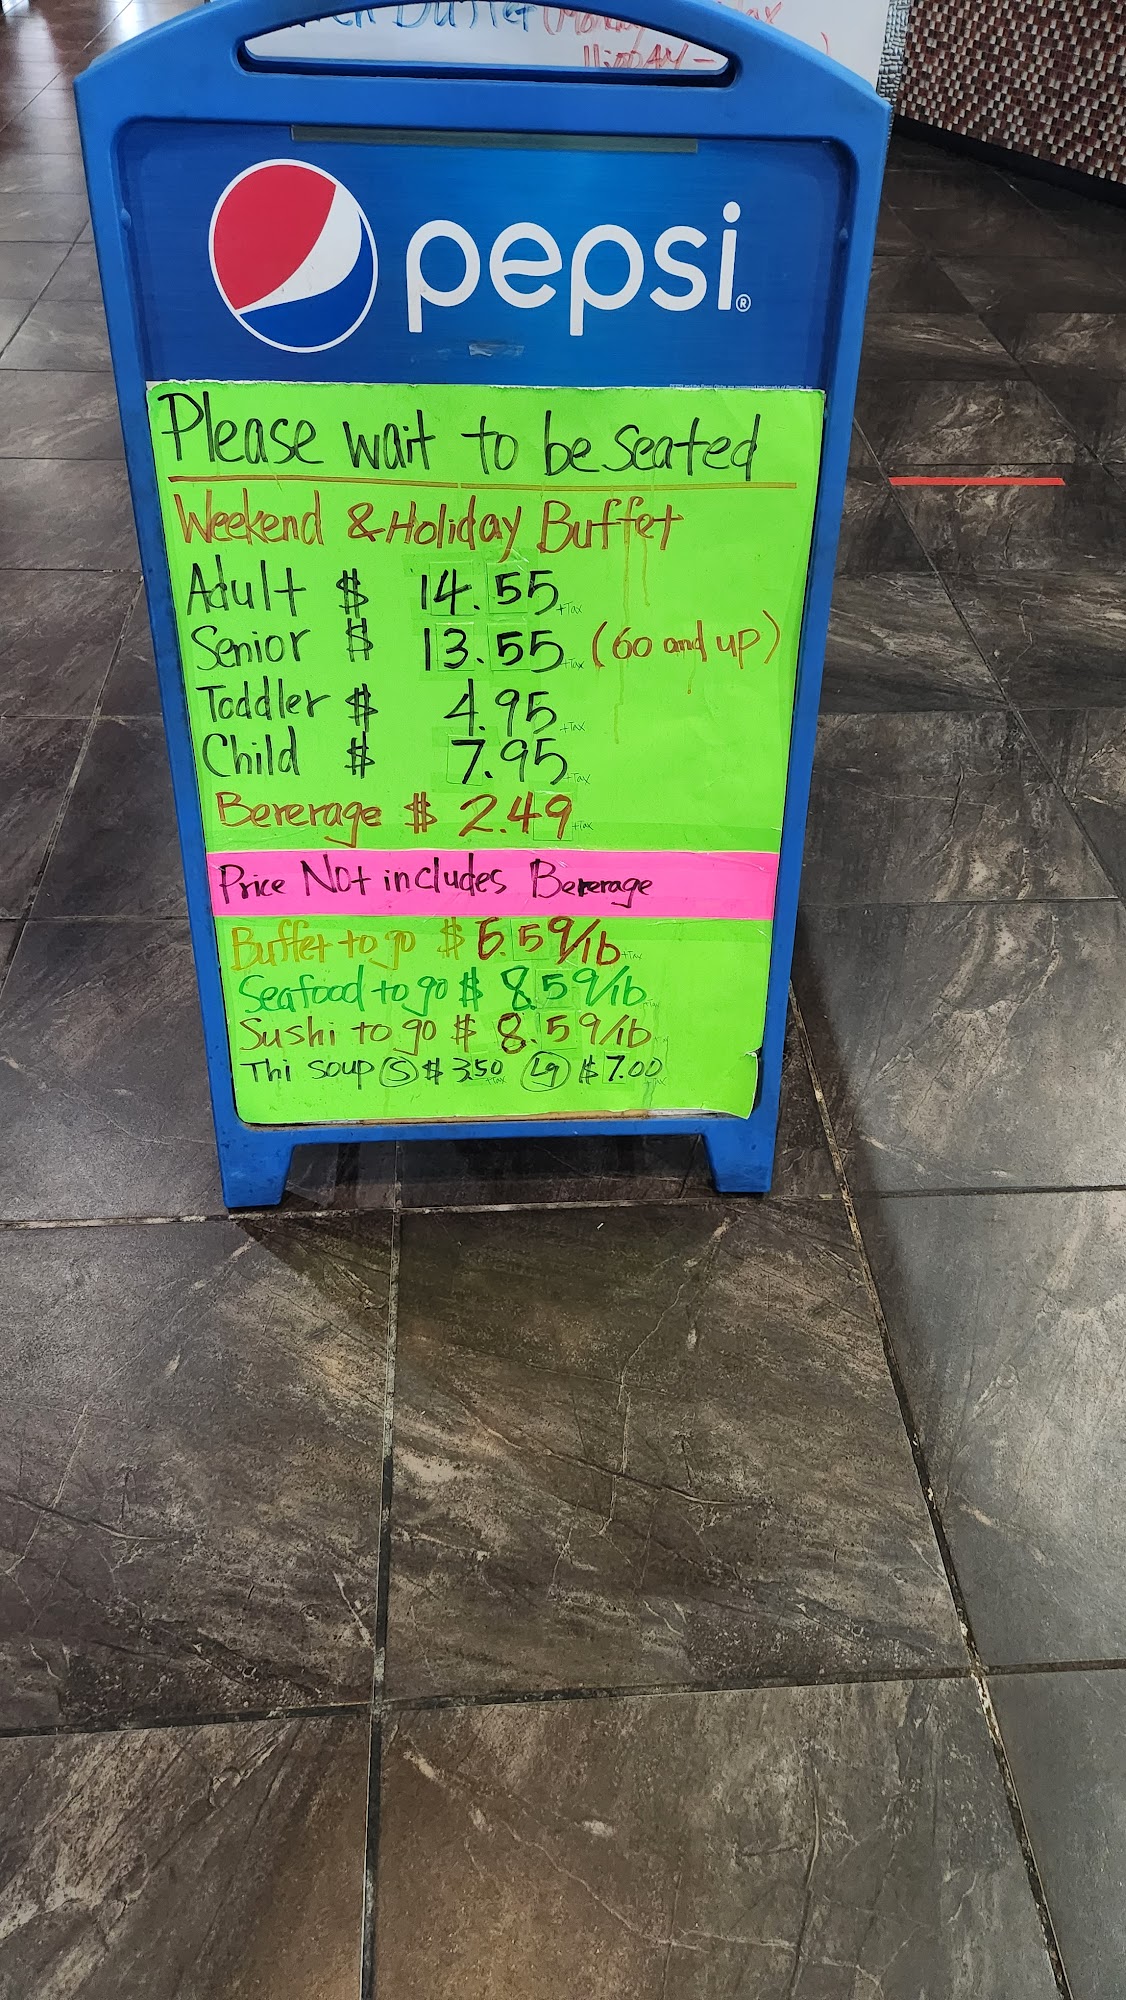 11:00AM -
pepsi®
Please wait to be seated
Weekend & Holiday Buffet
Adult $ 14.55 +Tax
Senior $ 13.55 +Tax (60 and up)
Toddler $ 4.95 +Tax
Child $ 7.95 +Tax
Bererage $ 2.49 +Tax
Price Not includes Bererage
Buffet to go $ 6.59/lb +Tax
Seafood to go $ 8.59/lb +Tax
Sushi to go $ 8.59/lb +Tax
Thi soup S $ 3.50 +Tax Lg $ 7.00 +Tax